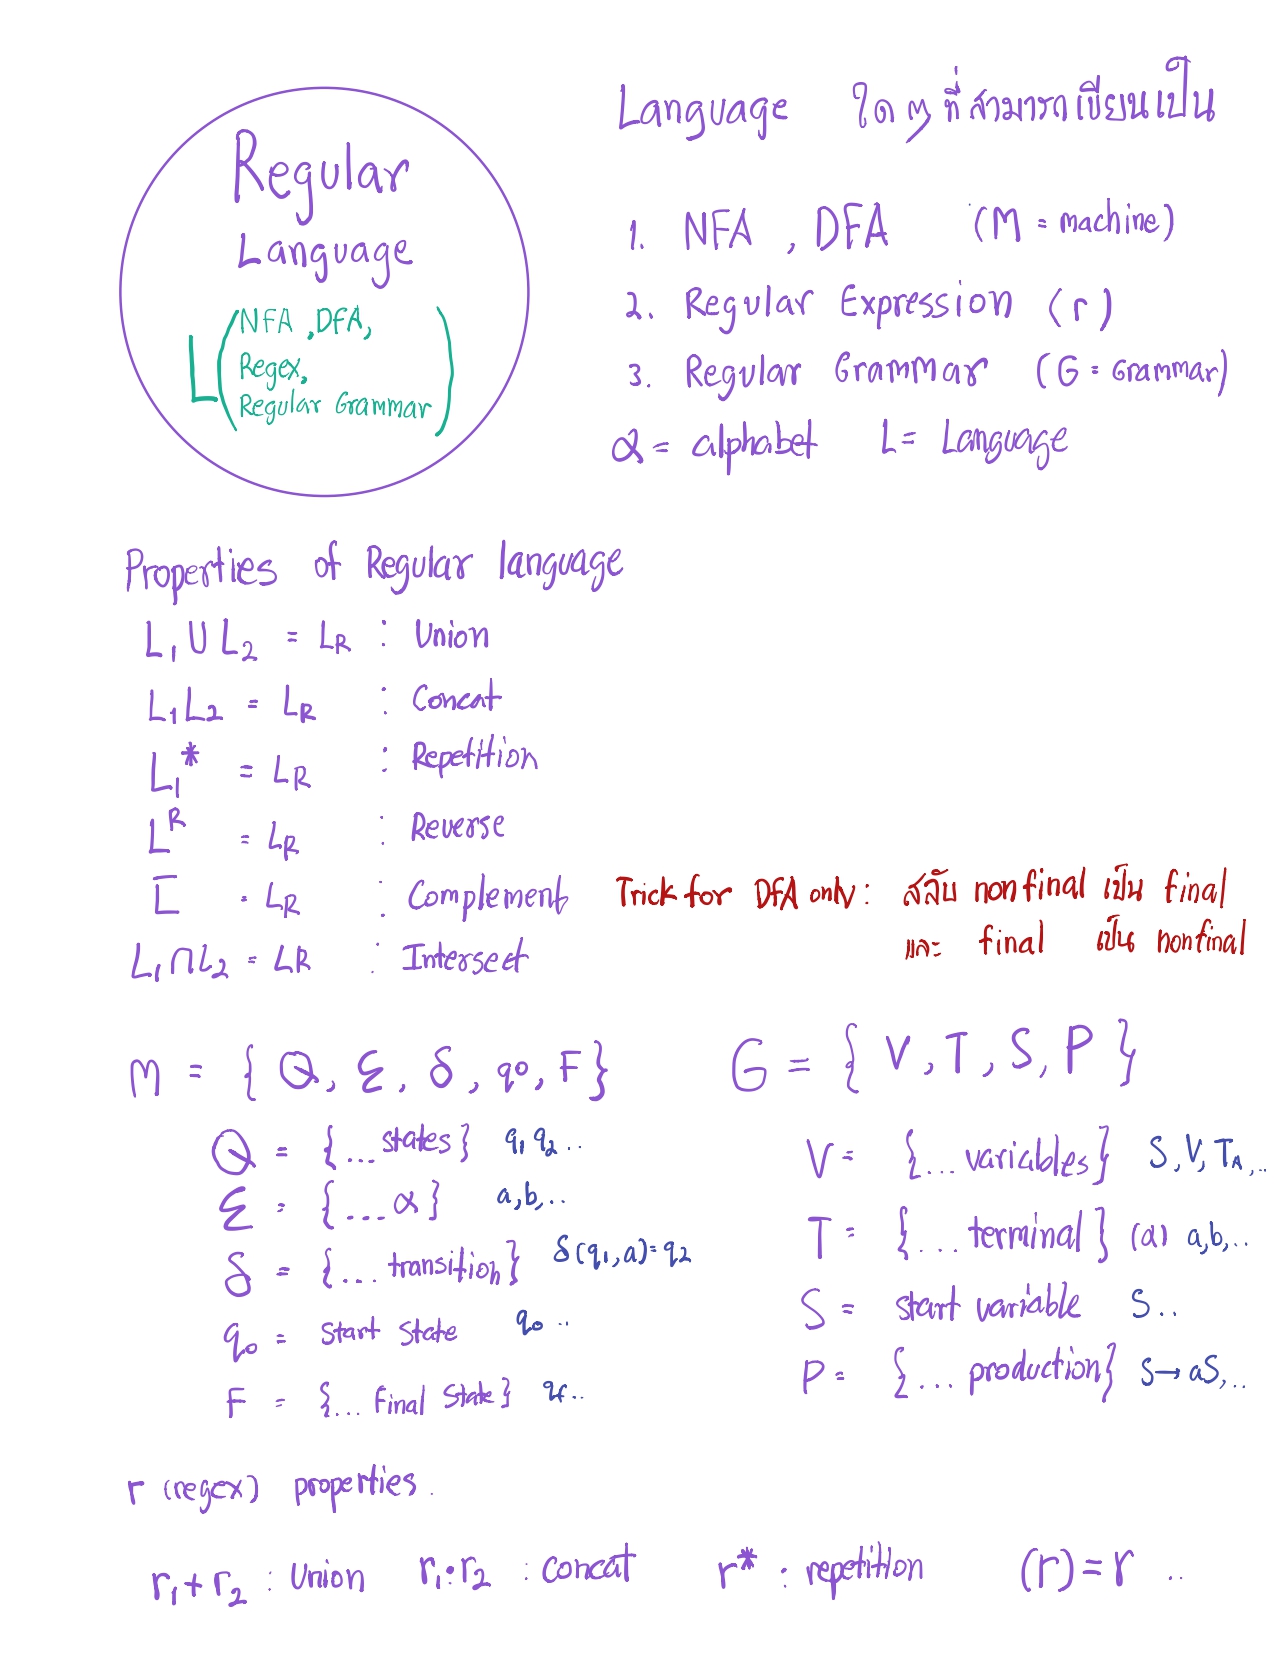 Regular
Language
L(NFA, DFA,
Regex,
Regular Grammar)
Language ใด ๆ ที่ สามารถ เขียน เป็น
1. NFA , DFA (M = machine)
2. Regular Expression (r)
3. Regular Grammar (G = Grammar)
α = alphabet L = Language
Properties of Regular language
L₁ ∪ L₂ = L_R : Union
L₁L₂ = L_R : Concat
L₁* = L_R : Repetition
L^R = L_R : Reverse
L̅ = L_R : Complement Trick for DFA only : สลับ nonfinal เป็น final
และ final เป็น nonfinal
L₁ ∩ L₂ = L_R : Intersect
M = { Q, Σ, δ, q₀, F }
Q = {... states} q₁ q₂ ..
Σ = {... α} a,b,..
δ = {... transition} δ(q₁,a) = q₂
q₀ = Start State q₀ ..
F = {... Final State} qf ..
G = { V, T, S, P }
V = {... variables} S, V, T_A, ..
T = {... terminal} (α) a,b,..
S = start variable S ..
P = {... production} S → aS, ..
r (regex) properties .
r₁ + r₂ : Union r₁·r₂ : Concat r* : repetition (r) = r ..